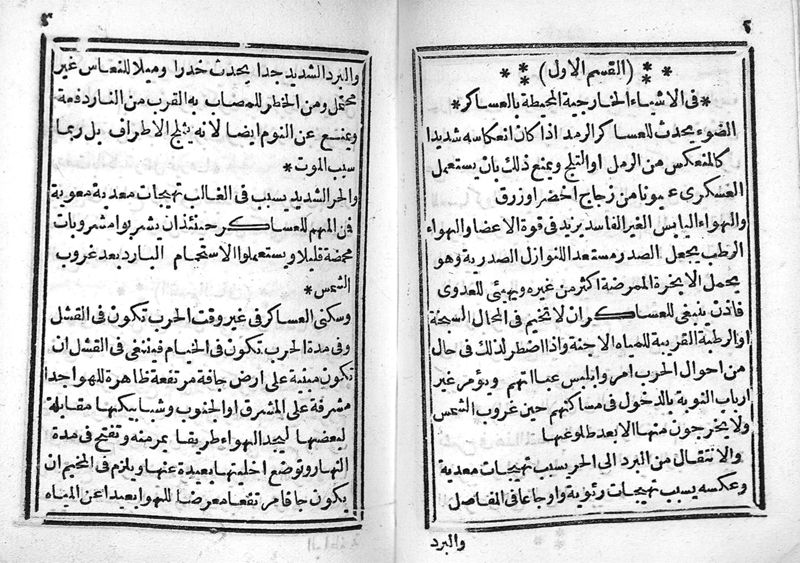 ٢
* * (القسم الاول) * *
*في الاشياء الخارجية المحيطة بالعساكر*
الضوء يحدث للعساكر الرمد اذا كان انعكاسه شديدا
كالمنعكس من الرمل او الثلج ويمنع ذلك بان يستعمل
العسكرى عيونا من زجاج اخضر او زرق
والهواء اليابس الغير الفاسد يزيد في قوة الاعضا والهواء
الرطب يجعل الصدر مستعدا للنوازل الصدرية وهو
يحمل الابخرة الممرضة اكثر من غيره ويهيئ للعدوى
فاذن ينبغى للعساكر ان لا تخيم في المحال السبخة
او الرطبة القريبة للمياه الاجنة واذا اضطر لذلك في حال
من احوال الحرب امروا بلبس عباآتهم ويؤمر غير
ارباب النوبة بالدخول في مساكنهم حين غروب الشمس
ولا يخرجون منها الا بعد طلوعها
والانتقال من البرد الى الحر يسبب تهيجات معدية
وعكسه يسبب تهيجات رئوية واوجاعا في المفاصل
والبرد
٣
والبرد الشديد جدا يحدث خدرا وميلا للنعاس غير
محتمل ومن الخطر للمصاب به القرب من النار دفعة
ويمنع عن النوم ايضا لانه يثلج الاطراف بل ربما
سبب الموت*
والحر الشديد يسبب في الغالب تهيجات معدية معوية
فمن المهم للعساكر حينئذ ان يشربوا مشروبات
محمضة قليلا ويستعملوا الاستحمام البارد بعد غروب
الشمس*
وسكنى العساكر في غير وقت الحرب تكون في القشل
وفى مدة الحرب تكون في الخيام فينبغى في القشل ان
تكون مبنية على ارض جافة مرتفعة ظاهرة للهوا جدا
مشرفة على المشرق او الجنوب وشبابيكها مقابلة
لبعضها ليجد الهواء طريقا يمر منه وتفتح في مدة
النهار وتوضع اخليتها بعيدة عنها ويلزم في المخيم ان
يكون جافا مرتفعا معرضا للهوا بعيدا عن المياه